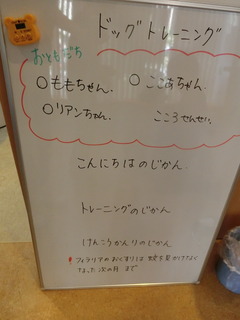 ドッグトレーニング
おともだち
○ももちゃん。 ○ここあちゃん。
○リアンちゃん。 こころせんせい。
こんにちはのじかん
トレーニングのじかん
けんこうかんりのじかん
フィラリアのおくすりは 蚊を見かけなく
なった次の月 まで